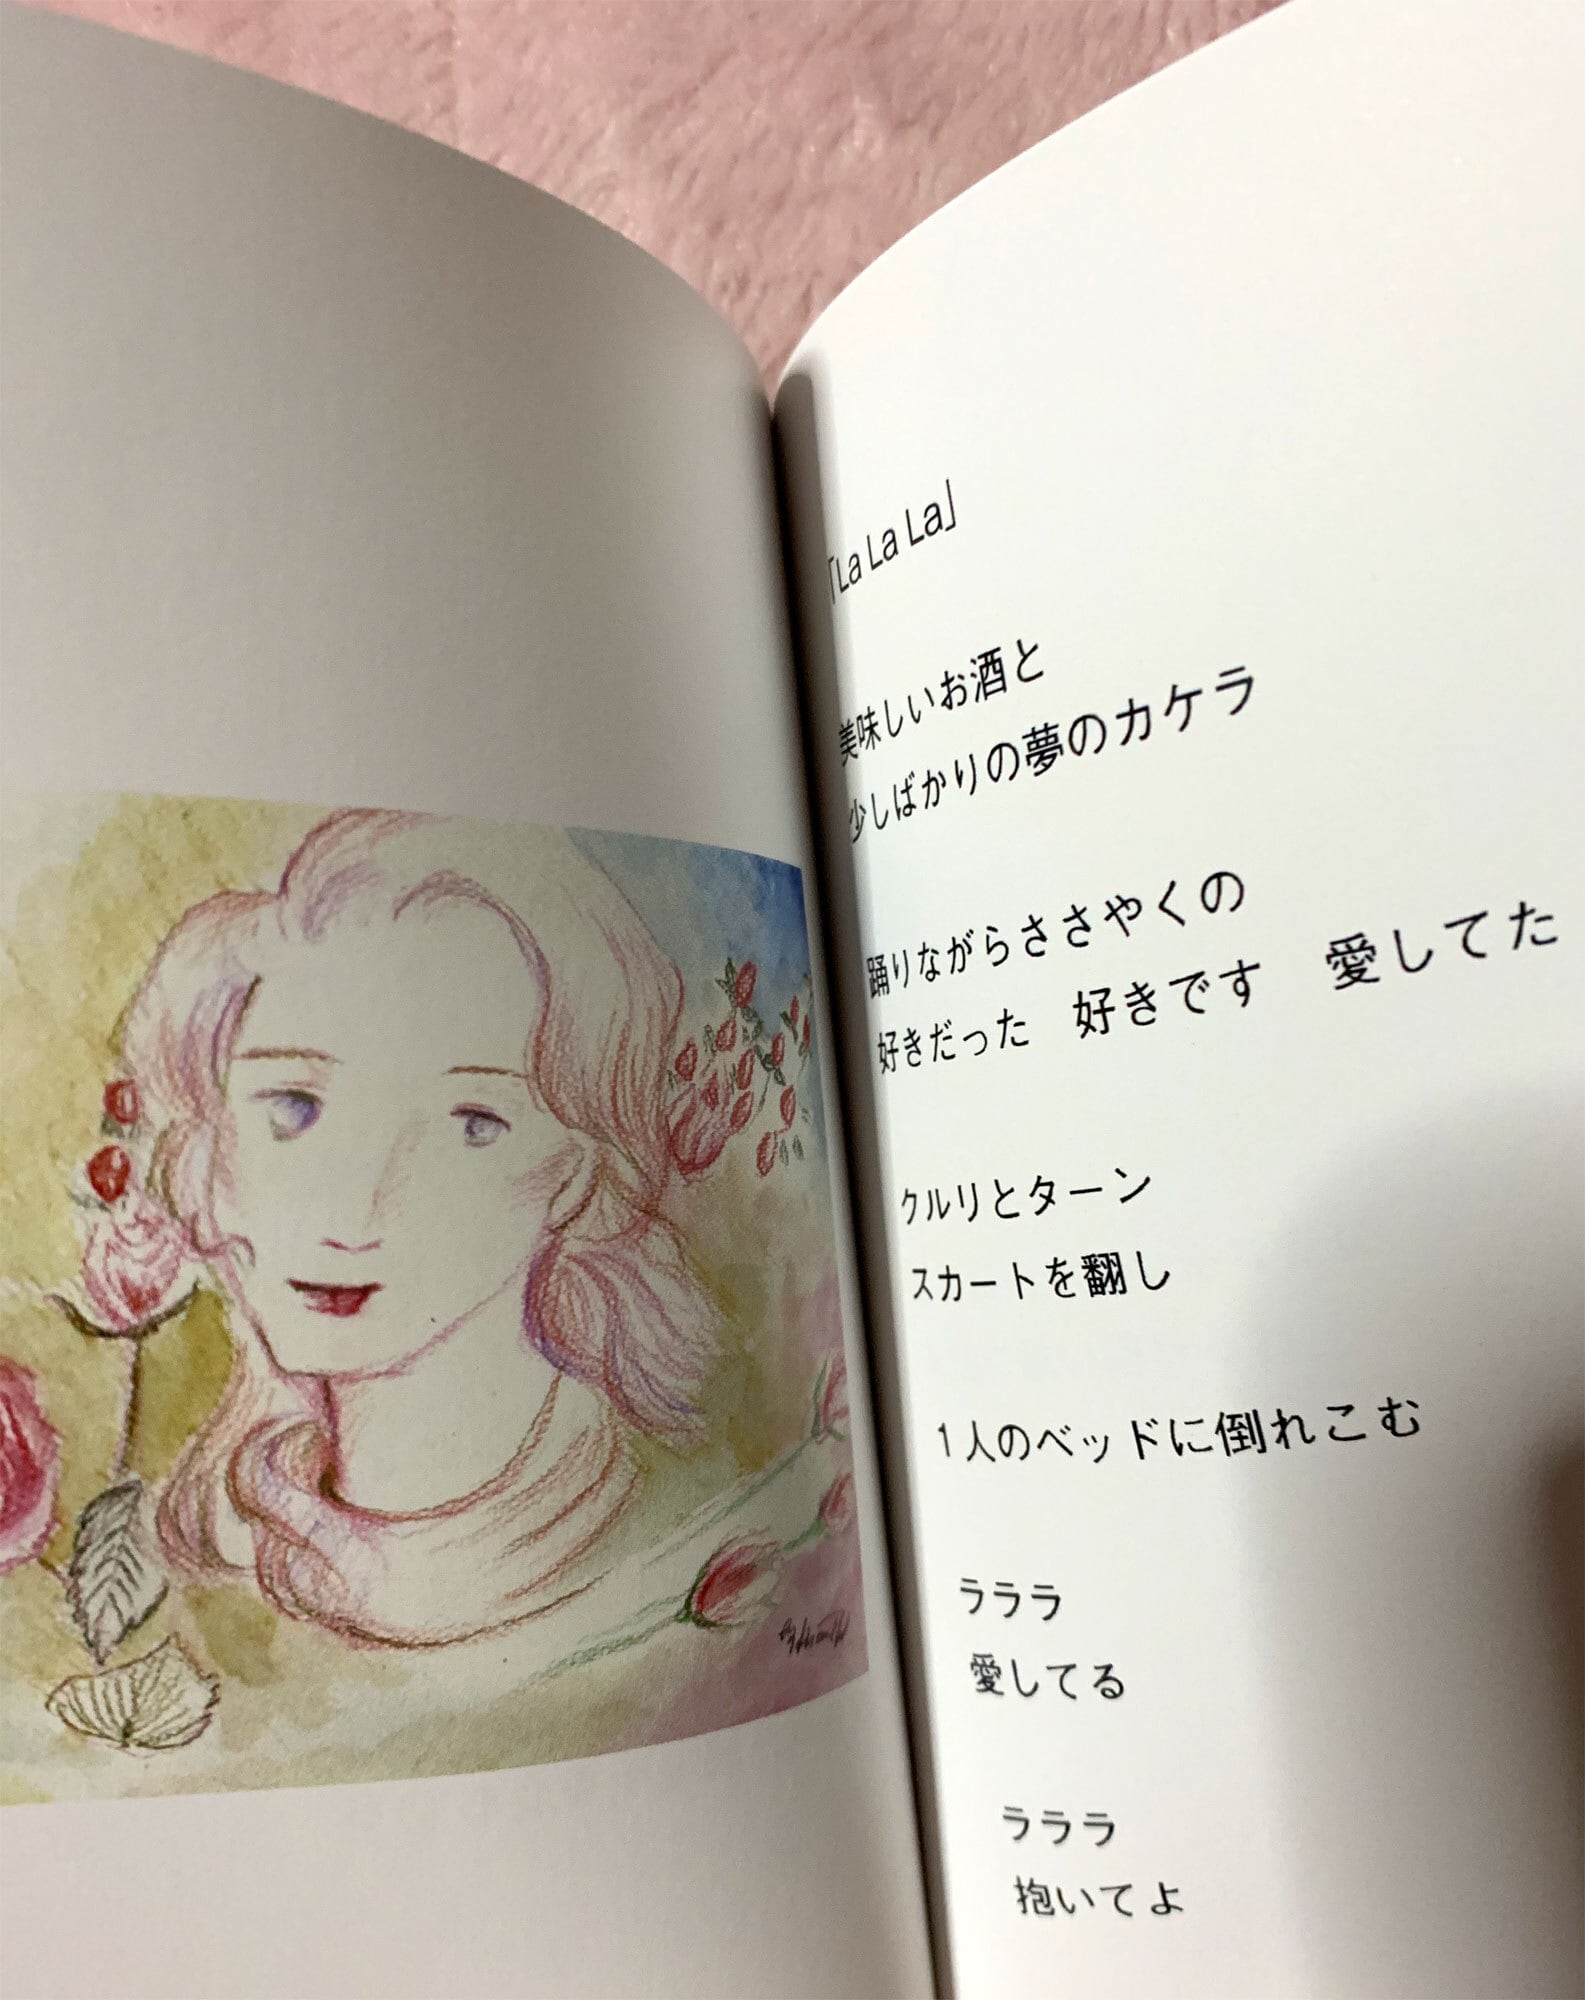 「La La La」
美味しいお酒と
少しばかりの夢のカケラ
踊りながらささやくの
好きだった　好きです　愛してた
クルリとターン
スカートを翻し
1人のベッドに倒れこむ
ラララ
愛してる
ラララ
抱いてよ